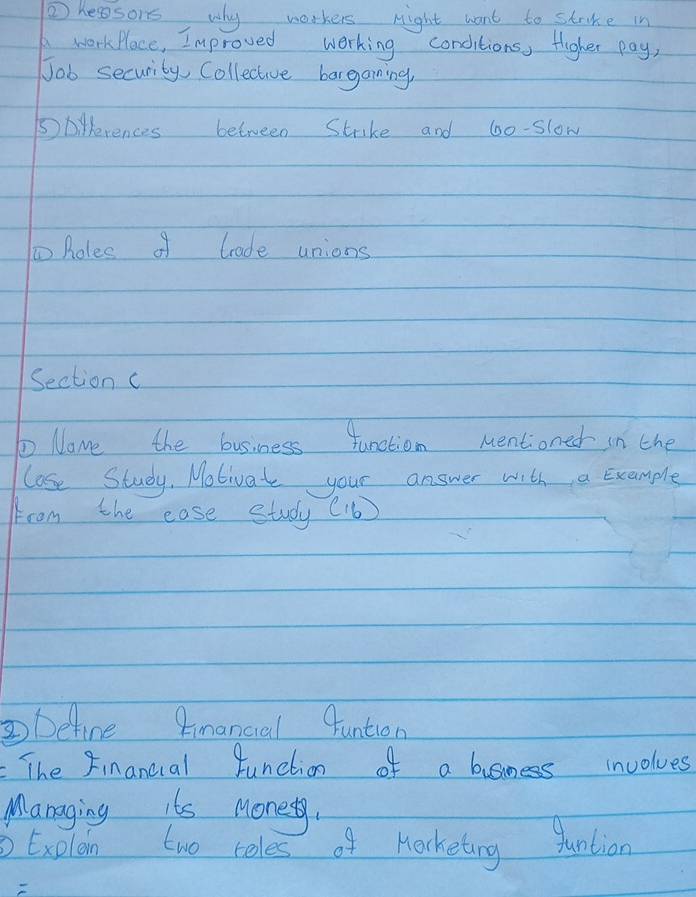 ② Reasons why workers Might want to strike in
a workPlace, Improved working conditions, Higher pay,
Job security, Collective bargaining,
⑤ Differences between Strike and Go-Slow
① Roles of trade unions
Section C
① Name the business function Mentioned in the
Case Study. Motivate your answer with a Example
From the case study (16)
② Define Financial Funtion
= The Financial Function of a business involves
Managing its Money.
③ Explain two roles of Marketing Funtion
=